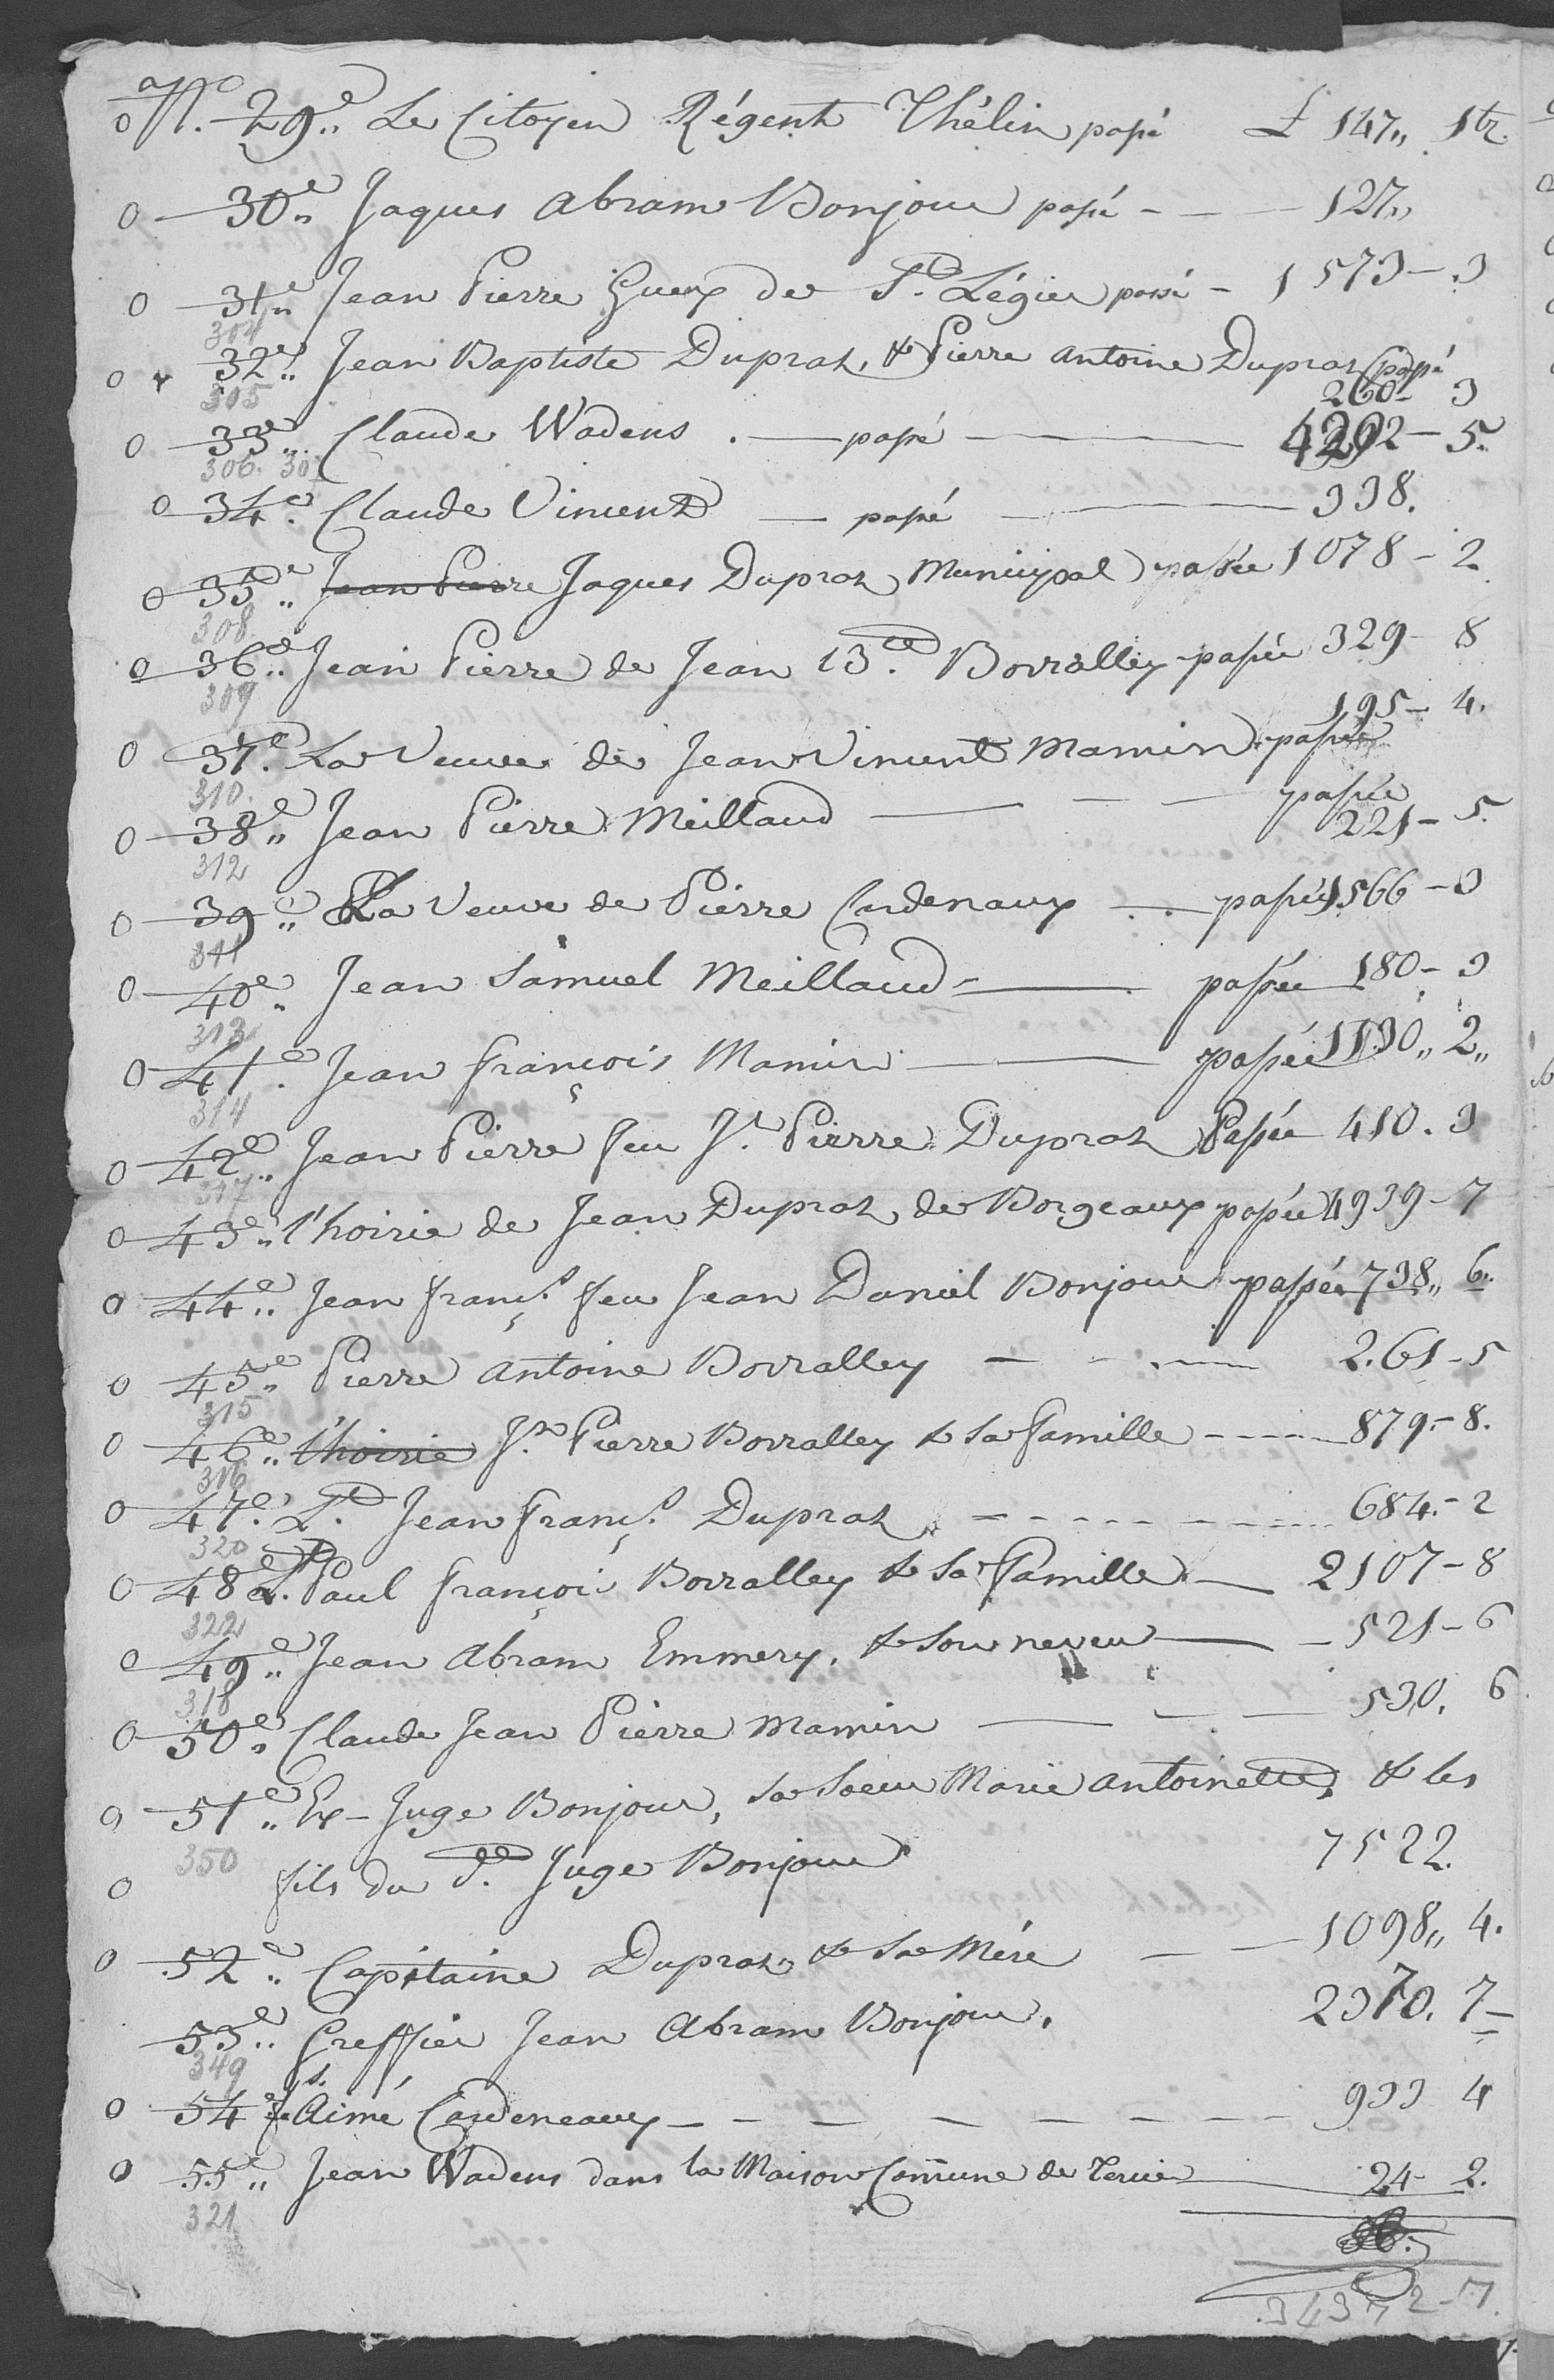 N.o 29e. Le Citoyen Régent Thélin passé £ 147,, 1 bz.
o 30e. Jaques Abram Bonjour passé - - - 127,,
o 31e. Jean Pierre Gueux de St. Légier passé - 1573 - 3
304
o 32e. Jean Baptiste Dupraz, & Pierre Antoine Dupraz passé
260 - 3
305
o 33e. Claude Wadens . — passé — 4292 - 5.
306. 307
o 34e. Claude Vincent — passé — 338.
o 35e. Jean Pierre Jaques Dupraz Municipal passée 1078 - 2
308
o 36e. Jean Pierre de Jean Bte. Borralley passée 329 - 8
309
195 - 4.
o 37e. La Veuve de Jean Vincent Mamin passée
310.
passée
o 38e. Jean Pierre Meillaud — - — 221 - 5.
312
o 39e. La Veuve de Pierre Cardenaux - . — passée 1566 - 3
311
o 40e. Jean Samuel Meillaud — passée 180 - 3
313
o 41e. Jean François Mamin — passée 1130,, 2,,
314
o 42e. Jean Pierre feu Jn. Pierre Dupraz Passée 410. 3
317
o 43e. l'hoirie de Jean Dupraz de Borgeaux passée 4939 - 7
o 44e. Jean Franç.s feu Jean Daniel Bonjour passée 738,, 6.
o 45e. Pierre Antoine Borralley — - - — 261 - 5
315
o 46e. l'hoirie Jn. Pierre Borralley & sa famille - - - - 879 - 8.
316
o 47e. Lt. Jean Franç.s Dupraz - - - - - - - 684. - 2
320
o 48e. Lt. Paul François Borralley & sa famille — 2107 - 8
322
o 49e. Jean Abram Emmery, & son neveu — - 521 - 6
318
o 50e. Claude Jean Pierre Mamin — - — 530. 6
o 51e. Ex-Juge Bonjour, sa soeur Marie Antoinette, & les
350
o fils du dt. Juge Bonjour 7522.
o 52e. Capitaine Dupraz & sa Mére — - 1098,, 4.
53e. Greffier Jean Abram Bonjour. 2370. 7 -
349
o 54e Js. Aimé Cardeneaux - - - - - - - - 933 4
o 55e. Jean Wadens dans la Maison Commune de Tercier 24 - 2.
321
34372 - 7.